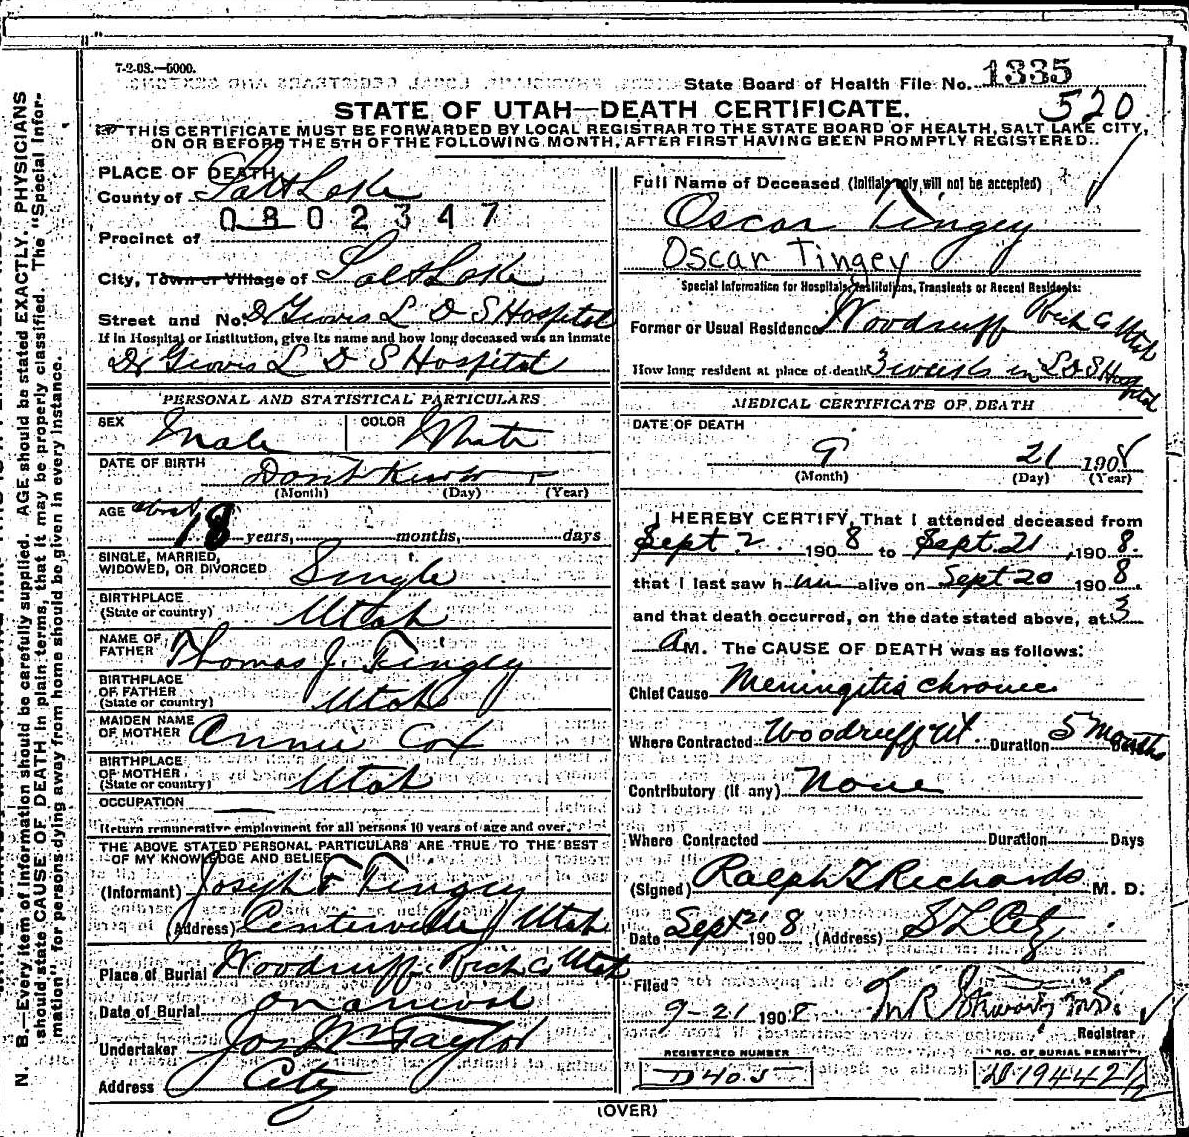 7-2-08.—5000.
State Board of Health File No. 1335
520
STATE OF UTAH—DEATH CERTIFICATE.
THIS CERTIFICATE MUST BE FORWARDED BY LOCAL REGISTRAR TO THE STATE BOARD OF HEALTH, SALT LAKE CITY,
ON OR BEFORE THE 5TH OF THE FOLLOWING MONTH, AFTER FIRST HAVING BEEN PROMPTLY REGISTERED.
PLACE OF DEATH
County of Salt Lake
0802347
Precinct of
City, Town or Village of Salt Lake
Street and No. Dr Groves L D S Hospital
If in Hospital or Institution, give its name and how long deceased was an inmate
Dr Groves L D S Hospital
PERSONAL AND STATISTICAL PARTICULARS
SEX Male COLOR White
DATE OF BIRTH Dont Know
(Month) (Day) (Year)
AGE about 18 years, months, days
SINGLE, MARRIED,
WIDOWED, OR DIVORCED Single
BIRTHPLACE
(State or country) Utah
NAME OF
FATHER Thomas J. Tingey
BIRTHPLACE
OF FATHER
(State or country) Utah
MAIDEN NAME
OF MOTHER Annie Cox
BIRTHPLACE
OF MOTHER
(State or country) Utah
OCCUPATION —
Return remunerative employment for all persons 10 years of age and over.
THE ABOVE STATED PERSONAL PARTICULARS ARE TRUE TO THE BEST
OF MY KNOWLEDGE AND BELIEF
(Informant) Joseph F Tingey
(Address) Centerville Utah
Place of Burial Woodruff Rich Co Utah
Date of Burial on arrival
Undertaker Jos Wm Taylor
Address City
Full Name of Deceased (Initials only will not be accepted)
Oscar Tingey
Oscar Tingey
Special Information for Hospitals, Institutions, Transients or Recent Residents:
Former or Usual Residence Woodruff Rich Co Utah
How long resident at place of death 3 weeks in L D S Hospital
MEDICAL CERTIFICATE OF DEATH
DATE OF DEATH
9 21 1908
(Month) (Day) (Year)
I HEREBY CERTIFY, That I attended deceased from
Sept 2 1908 to Sept. 21, 1908.
that I last saw him alive on Sept 20 1908.
and that death occurred, on the date stated above, at 3
A M. The CAUSE OF DEATH was as follows:
Chief Cause Meningitis chronic
Where Contracted Woodruff Ut. Duration 5 Months
Contributory (if any) None
Where Contracted Duration Days
(Signed) Ralph T Richards M. D.
Date Sept 21 1908, (Address) S L City
Filed
9-21 1908
Registrar
REGISTERED NUMBER
D405
NO. OF BURIAL PERMIT
(OVER)
N. B.—Every item of information should be carefully supplied. AGE should be stated EXACTLY. PHYSICIANS
should state CAUSE OF DEATH in plain terms, that it may be properly classified. The "Special Infor-
mation" for persons dying away from home should be given in every instance.